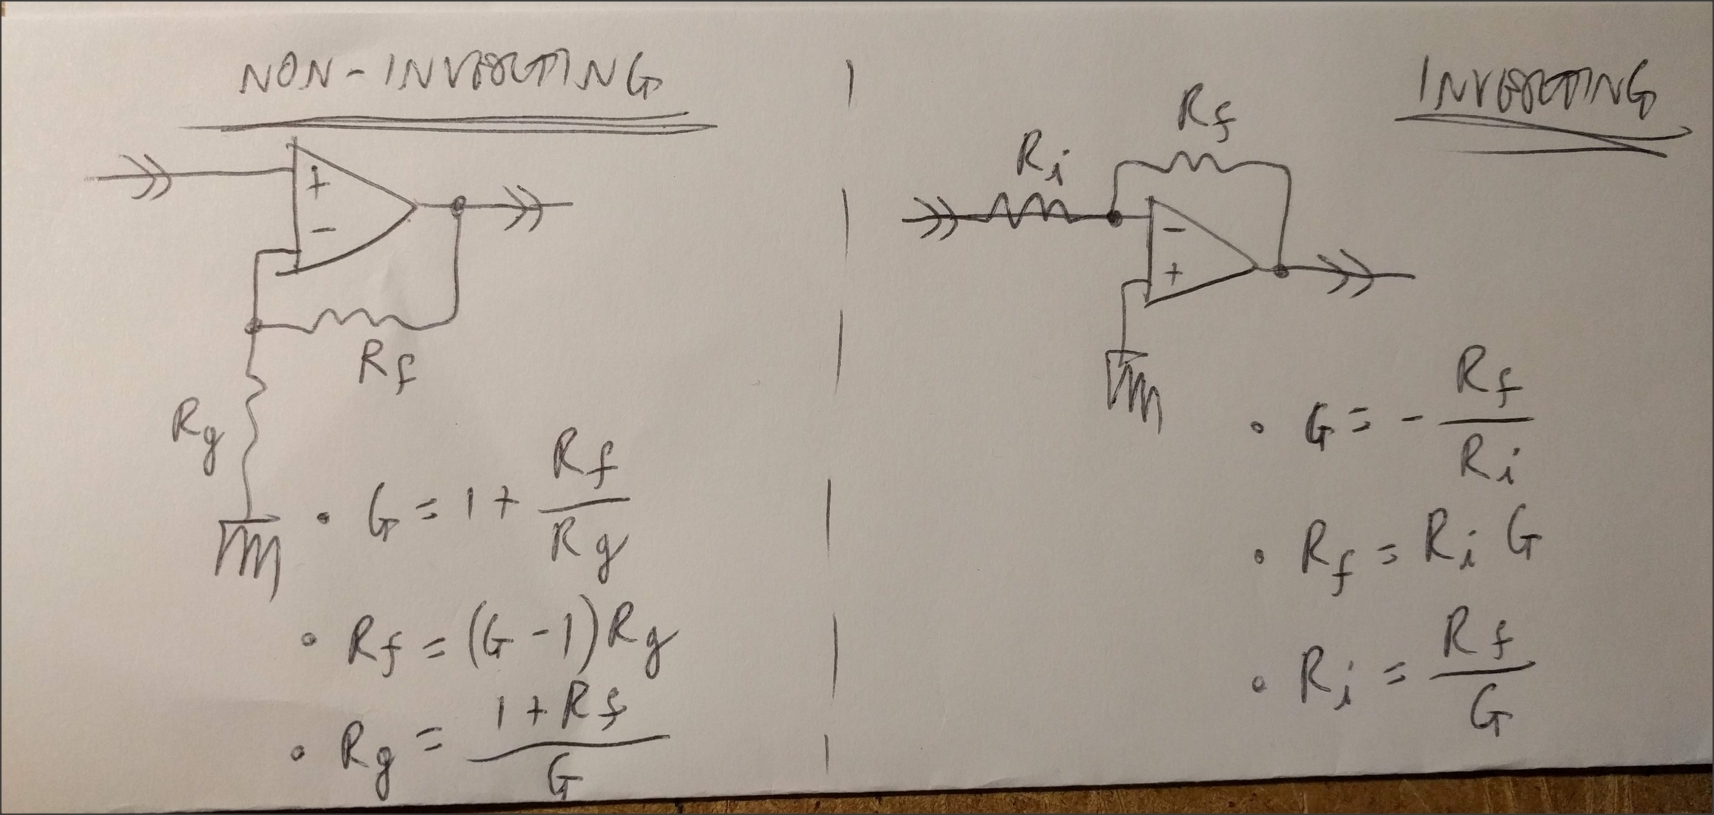 NON-INVERTING
+
−
Rf
Rg
• G = 1 + Rf/Rg
• Rf = (G − 1) Rg
• Rg = 1 + Rf/G
INVERTING
Rf
Ri
−
+
• G = − Rf/Ri
• Rf = Ri G
• Ri = Rf/G